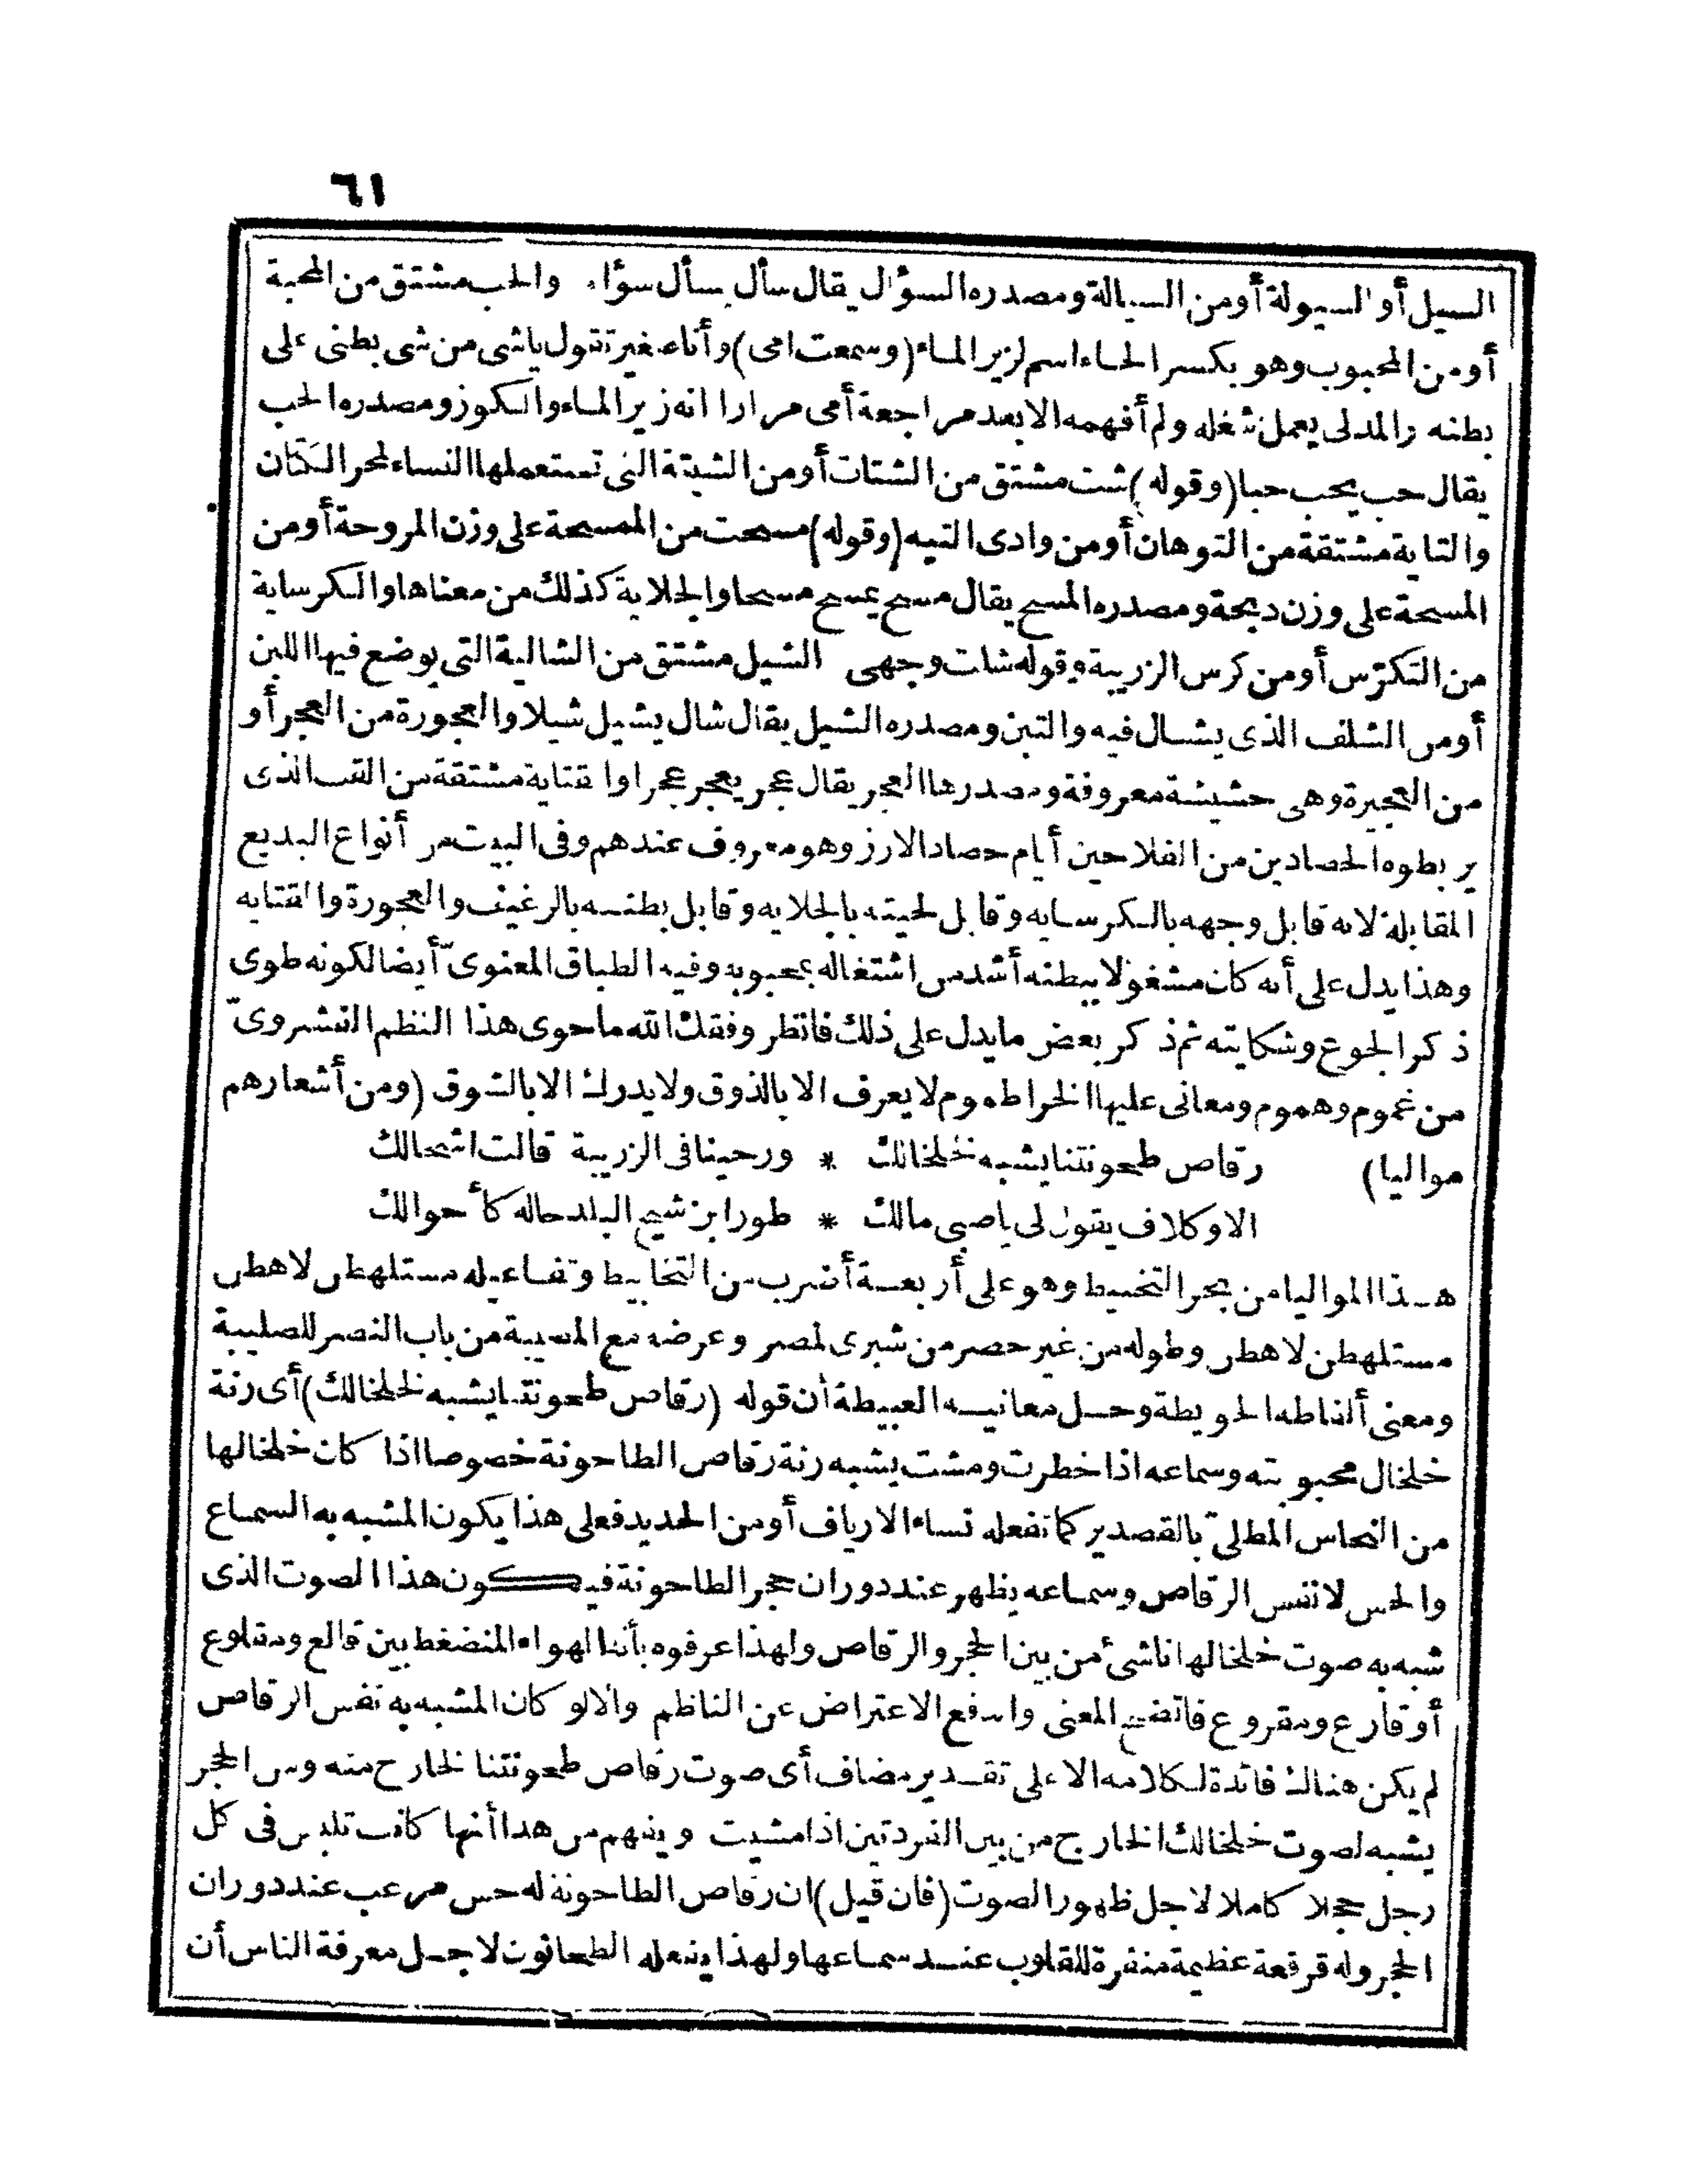 ٦١
السيل أو السيولة أو من السيالة ومصدره السؤال يقال سأل يسأل سؤاء والحب مشتق من المحبة
أو من المحبوب وهو بكسر الحاء اسم لزير الماء (وسمعت امى) وأنا صغير تقول ياشى من شى بطنى على
بطنه والمدلى يعمل شغله ولم أفهمه الا بعد مراجعة أمى مرارا انه زير الماء والكوز ومصدره الحب
يقال حب يحب حبا (وقوله) شت مشتق من الشتات أو من الشيتة التى تستعملها النساء لحر الكتان
والتاية مشتقة من التوهان أو من وادى التيه (وقوله) مسحت من الممسحة على وزن المروحة أو من
المسحة على وزن دبحة ومصدره المسح يقال مسح يمسح مسحا والجلابة كذلك من معناها والكرساية
من التكرّس أو من كرس الزريبة وقوله شات وجهى الشيل مشتق من الشالية التى يوضع فيها اللبن
أو من الشلف الذى يشال فيه والتبن ومصدره الشيل يقال شال يشيل شيلا والعجورة من العجر أو
من العجيرة وهى حشيشة معروفة ومصدرها العجر يقال عجر يعجر عجرا والقتاية مشتقة من القت الذى
يربطوه الحصادين من الفلاحين أيام حصاد الارز وهو معروف عندهم وفى البيت من أنواع البديع
المقابلة لانه قابل وجهه بالكرسايه وقابل لحيته بالجلايه وقابل بطنه بالرغيف والعجورة والقتايه
وهذا يدل على أنه كان مشغولا ببطنه أشد من اشتغاله بمحبوبه وفيه الطباق المعنوىّ أيضا لكونه طوى
ذكر الجوع وشكايته ثم ذكر بعض ما يدل على ذلك فانظر وفقك الله ما حوى هذا النظم القشروىّ
من غموم وهموم ومعانى عليها الخراطه وم لا يعرف الا بالذوق ولا يدرك الا بالشوق (ومن أشعارهم
مواليا) رقاص طحونتنا يشبه خلخالك * ورحينا فى الزريبة قالت اشحالك
الاوكلاف يقول لى ياصبى مالك * طورا بن شيخ البلد حاله كأحوالك
هذا المواليا من بحر التخبيط وهو على أربعة أضرب من التخابيط وتفاعيله مستلهطن لاهطن
مستلهطن لاهطن وطوله من غير حصر من شبرى لمصر وعرضه مع المسيبة من باب النصر للصليبة
ومعنى ألفاظه الحويطة وحل معانيه العبيطة أن قوله (رقاص طحونتنا يشبه لخلخالك) أى رنة
خلخال محبوبته وسماعه اذا خطرت ومشت يشبه رنة رقاص الطاحونة خصوصا اذا كان خلخالها
من النحاس المطلىّ بالقصدير كما تفعله نساء الارياف أو من الحديد فعلى هذا يكون المشبه به السماع
والحس لا نفس الرقاص وسماعه يظهر عند دوران حجر الطاحونة فيكون هذا الصوت الذى
شبه به صوت خلخالها ناشئ من بين الحجر والرقاص ولهذا عرفوه بأنه الهواء المنضغط بين قالع ومقلوع
أو قارع ومقروع فاتضح المعنى واندفع الاعتراض عن الناظم والا لو كان المشبه به نفس الرقاص
لم يكن هناك فائدة لكلامه الا على تقدير مضاف أى صوت رقاص طحونتنا الخارج منه ومن الحجر
يشبه لصوت خلخالك الخارج من بين الفردتين اذا مشيت ويفهم من هذا أنها كانت تلبس فى كل
رجل حجلا كاملا لاجل ظهور الصوت (فان قيل) ان رقاص الطاحونة له حس مرعب عند دوران
الحجر وله قرقعة عظيمة منفرة للقلوب عند سماعها ولهذا يفعله الطحانون لاجل معرفة الناس أن